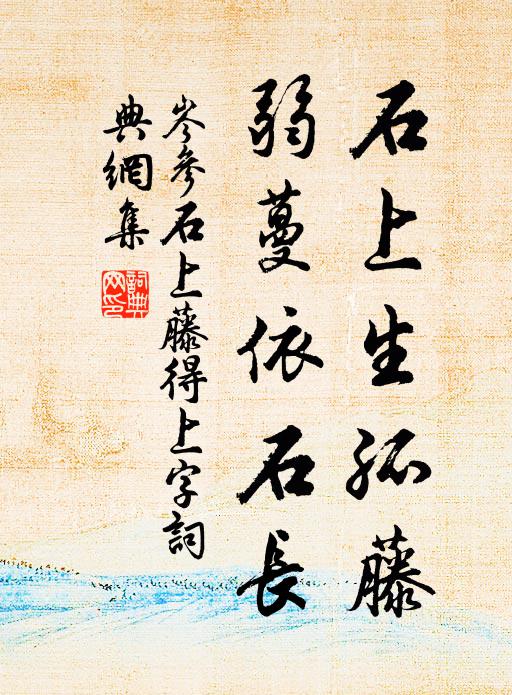 石上生孤藤
弱蔓依石長
岑參石上藤得上字詞
典網集
詞典網印